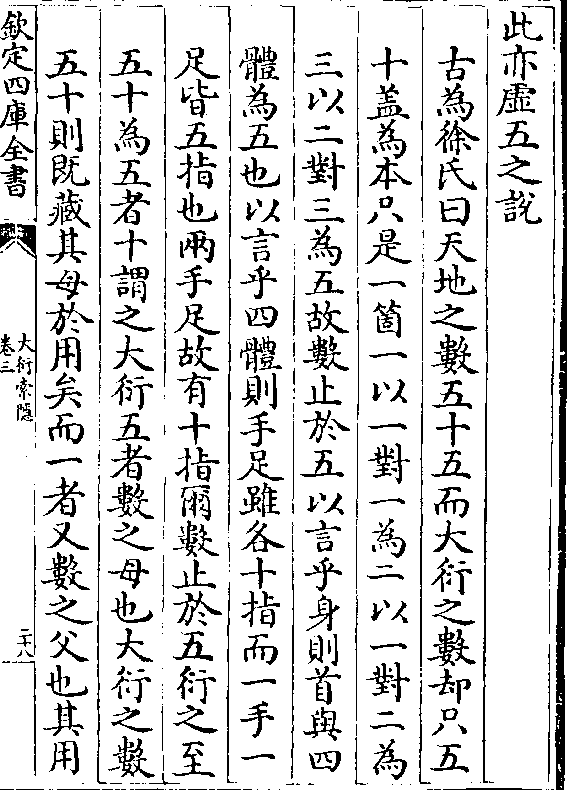 此亦虛五之說
古為徐氏曰天地之數五十五而大衍之數却只五
十盖為本只是一箇一以一對一為二以一對二為
三以二對三為五故數止於五以言乎身則首與四
體為五也以言乎四體則手足雖各十指而一手一
足皆五指也兩手足故有十指爾數止於五衍之至
五十為五者十謂之大衍五者數之母也大衍之數
五十則既藏其母於用矣而一者又數之父也其用
欽定四庫全書
大衍索隱
卷三
二十八